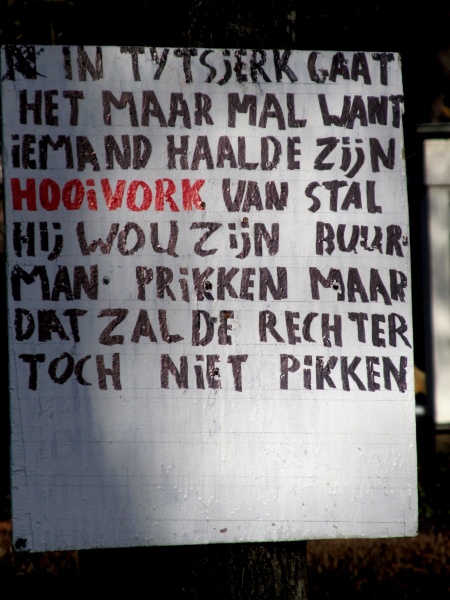 IN TYTSJERK GAAT
HET MAAR MAL WANT
IEMAND HAALDE ZIJN
HOOIVORK VAN STAL
HIJ WOU ZIJN BUUR-
MAN. PRIKKEN MAAR
DAT ZAL DE RECHTER
TOCH NIET PIKKEN